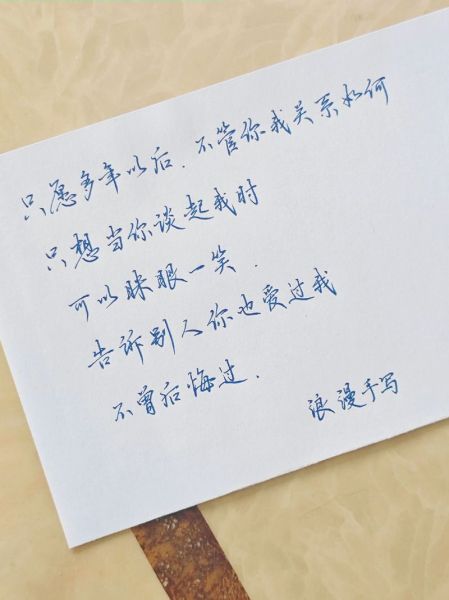 只愿多年以后.不管你我关系如何
只想当你谈起我时
可以眯眼一笑.
告诉别人你也爱过我
不曾后悔过.
浪漫手写